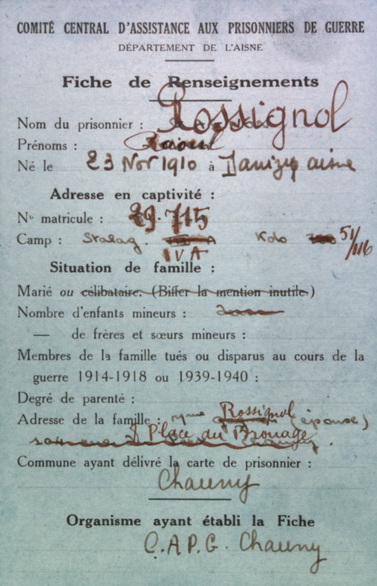 COMITÉ CENTRAL D'ASSISTANCE AUX PRISONNIERS DE GUERRE
DÉPARTEMENT DE L'AISNE
Fiche de Renseignements
Nom du prisonnier : Rossignol
Prénoms : Raoul
Né le 23 Nov 1910 à aisne
Adresse en captivité :
N° matricule : 29.715
Camp : Stalag. IVA Kdo 51/116
Situation de famille :
Marié ou célibataire. (Biffer la mention inutile)
Nombre d'enfants mineurs :
— de frères et sœurs mineurs :
Membres de la famille tués ou disparus au cours de la
guerre 1914-1918 ou 1939-1940 :
Degré de parenté :
Adresse de la famille : Mme Rossignol (épouse)
Place du Brouage
Commune ayant délivré la carte de prisonnier :
Chauny
Organisme ayant établi la Fiche
C.A.P.G. Chauny